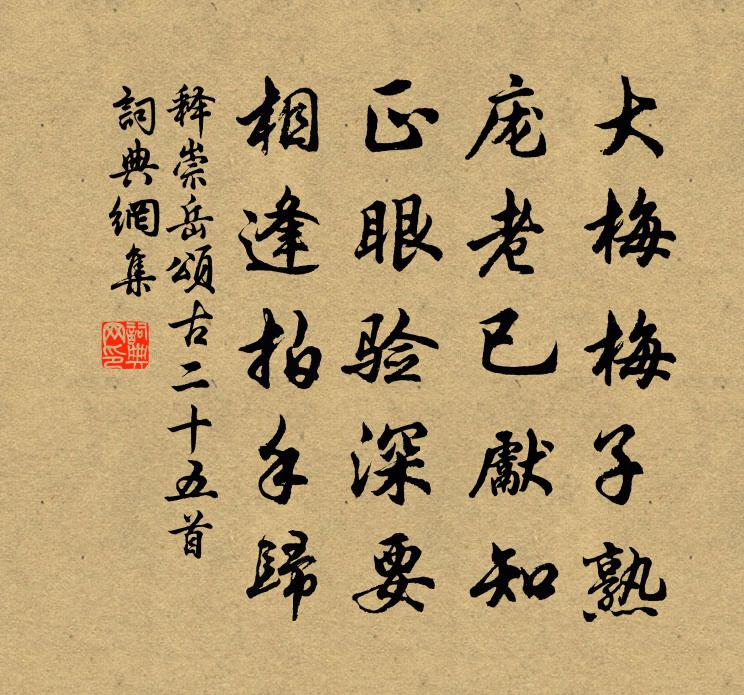 大梅梅子熟
庞老已獻知
正眼验深要
相逢拍手歸
释崇岳頌古二十五首
詞典網集
詞典网印